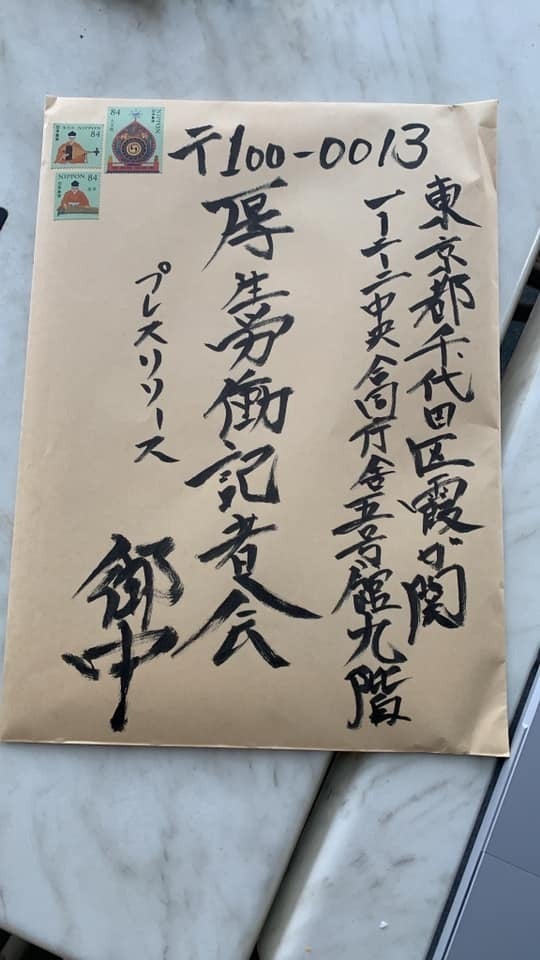 〒100-0013
東京都千代田区霞が関
一ー二ー二中央合同庁舎五号館九階
厚生労働記者会
プレスリリース
御中
84
NIPPON
84
NIPPON
NIPPON 84